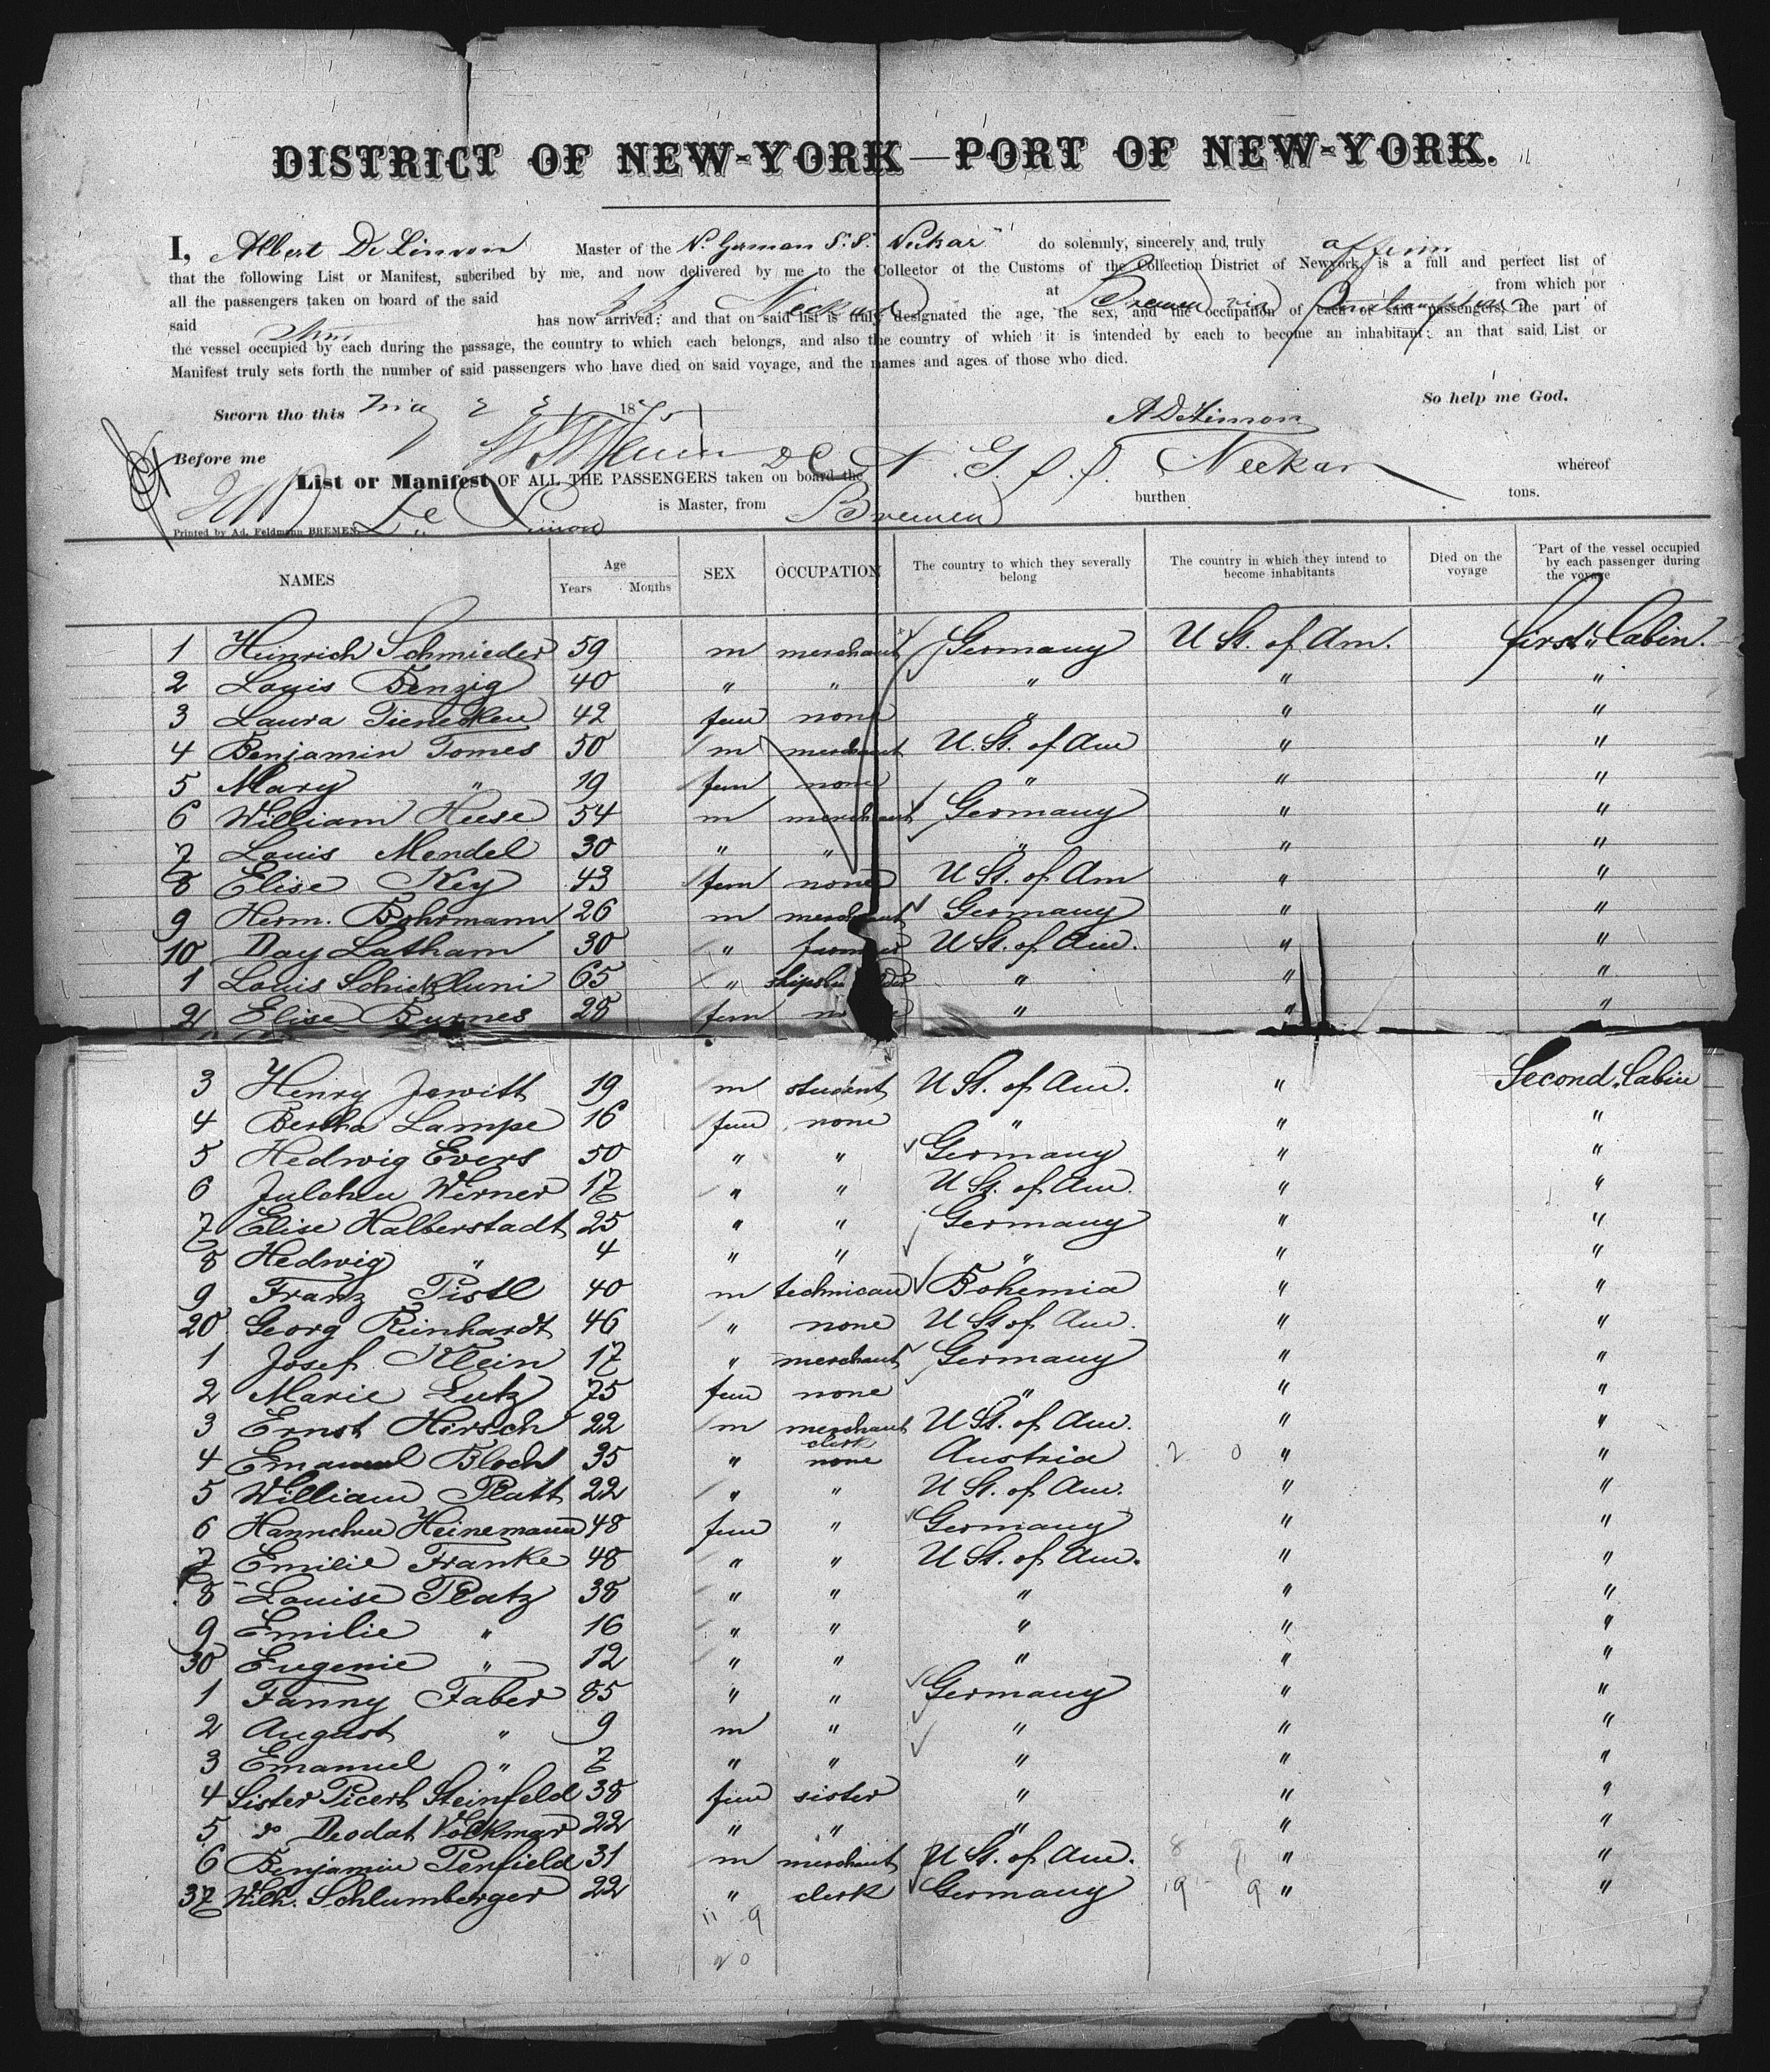 DISTRICT OF NEW-YORK—PORT OF NEW-YORK.
I, Albert De Limon Master of the N. German S. S. Neckar do solemnly, sincerely and, truly affirm
that the following List or Manifest, subcribed by me, and now delivered by me to the Collector of the Customs of the Collection District of Newyork, is a full and perfect list of
all the passengers taken on board of the said S. S. Neckar at Bremen via from which por
said has now arrived: and that on said list is truly designated the age, the sex, and the occupation of each of said passengers, the part of
the vessel occupied by each during the passage, the country to which each belongs, and also the country of which it is intended by each to become an inhabitant: an that said List or
Manifest truly sets forth the number of said passengers who have died on said voyage, and the names and ages of those who died.
So help me God.
Sworn tho this May 22 1875
A De Limon
Before me
List or Manifest OF ALL THE PASSENGERS taken on board the N. G. S. S. Neckar whereof
De Limon is Master, from Bremen burthen tons.
Printed by Ad. Feldmann BREMEN.
NAMES Age Years Months SEX OCCUPATION The country to which they severally belong The country in which they intend to become inhabitants Died on the voyage Part of the vessel occupied by each passenger during the voyage
1 Heinrich Schmieder 59 m merchant Germany U St. of Am. first Cabin.
2 Louis Benzig 40 " " " " "
3 Laura Tienecken 42 fem none " " "
4 Benjamin Tomes 50 m merchant U. St. of Am " "
5 Mary " 19 fem none " " "
6 William Heese 54 m merchant Germany " "
7 Louis Mendel 30 " " " " "
8 Elise Key 43 fem none U St. of Am " "
9 Herm. Bohrmann 26 m merchant Germany " "
10 Day Latham 30 " farmer U St. of Am. " "
1 Louis Schickluni 65 " shipsbuilder " " "
2 Elise Burnes 28 fem " " "
3 Henry Jewitt 19 m student U St. of Am. " Second Cabin
4 Bertha Lampe 16 fem none " " "
5 Hedwig Evers 50 " " Germany " "
6 Julchen Werner 17 " " U St. of Am. " "
7 Elise Halberstadt 25 " " Germany " "
8 Hedwig " 4 " " " " "
9 Franz Pistl 40 m technican Bohemia " "
20 Georg Reinhardt 46 " none U St of Am. " "
1 Josef Klein 17 " merchant Germany " "
2 Marie Lutz 75 fem none " " "
3 Ernst Hirsch 22 m merchant U St. of Am. " "
clerk
4 Emanuel Bloch 35 " none Austria 2 0 " "
5 William Platt 22 " " U St. of Am. " "
6 Hannchen Heinemann 48 fem " Germany " "
7 Emilie Franke 48 " " U St. of Am. " "
8 Louise Platz 38 " " " " "
9 Emilie " 16 " " " " "
30 Eugenie " 12 " " " " "
1 Fanny Faber 35 " " Germany " "
2 August " 9 m " " " "
3 Emanuel " 7 " " " " "
4 Sister Picert Steinfeld 38 fem sister " " "
5 do Deodat Volkmar 22 " " " " "
6 Benjamin Penfield 31 m merchant U St. of Am. 8 9 " "
37 Wilh. Schlumberger 22 " clerk Germany 19 9 " "
11 9
20